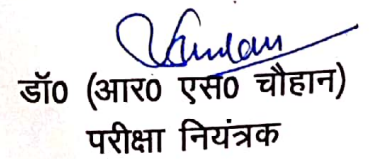 डॉ0 (आर0 एस0 चौहान)
परीक्षा नियंत्रक